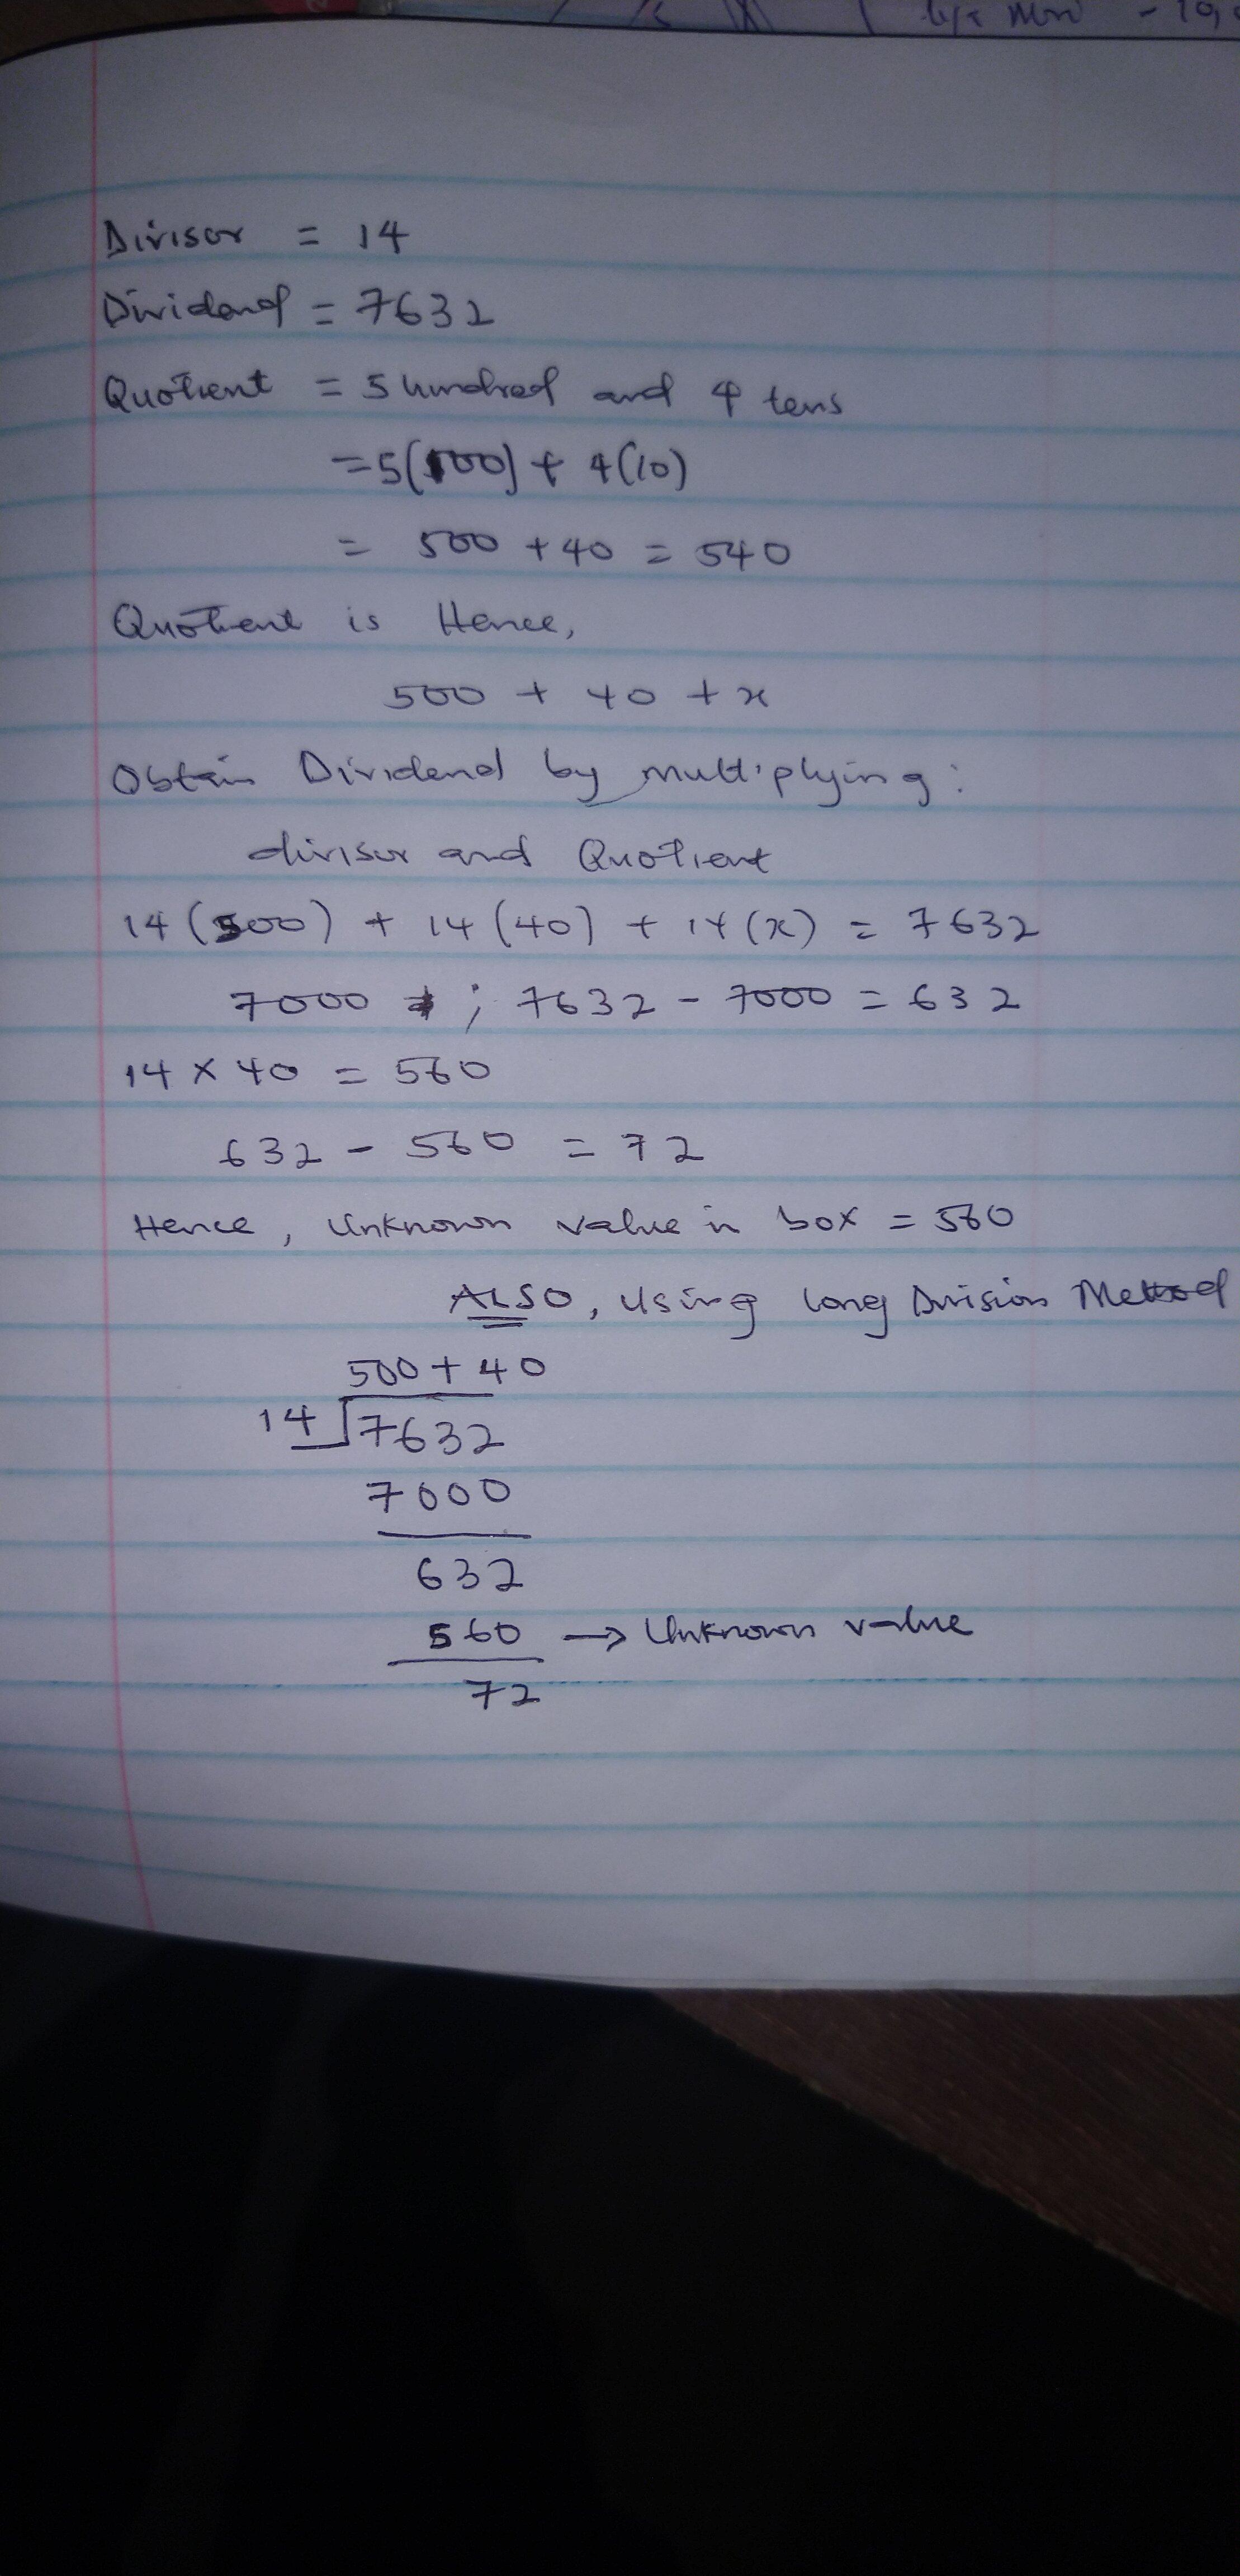 Divisor = 14
Dividend = 7632
Quotient = 5 hundred and 4 tens
= 5(100) + 4(10)
= 500 + 40 = 540
Quotient is Hence,
500 + 40 + x
Obtain Dividend by multiplying:
divisor and Quotient
14 (500) + 14 (40) + 14 (x) = 7632
7000 ; 7632 - 7000 = 632
14 x 40 = 560
632 - 560 = 72
Hence, Unknown value in box = 560
ALSO, Using Long Division Method
500 + 40
14 7632
7000
632
560 → Unknown value
72